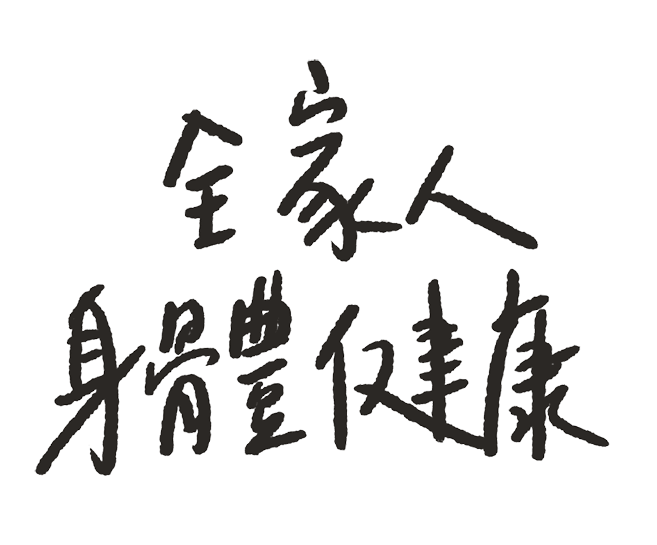 全家人
身體健康